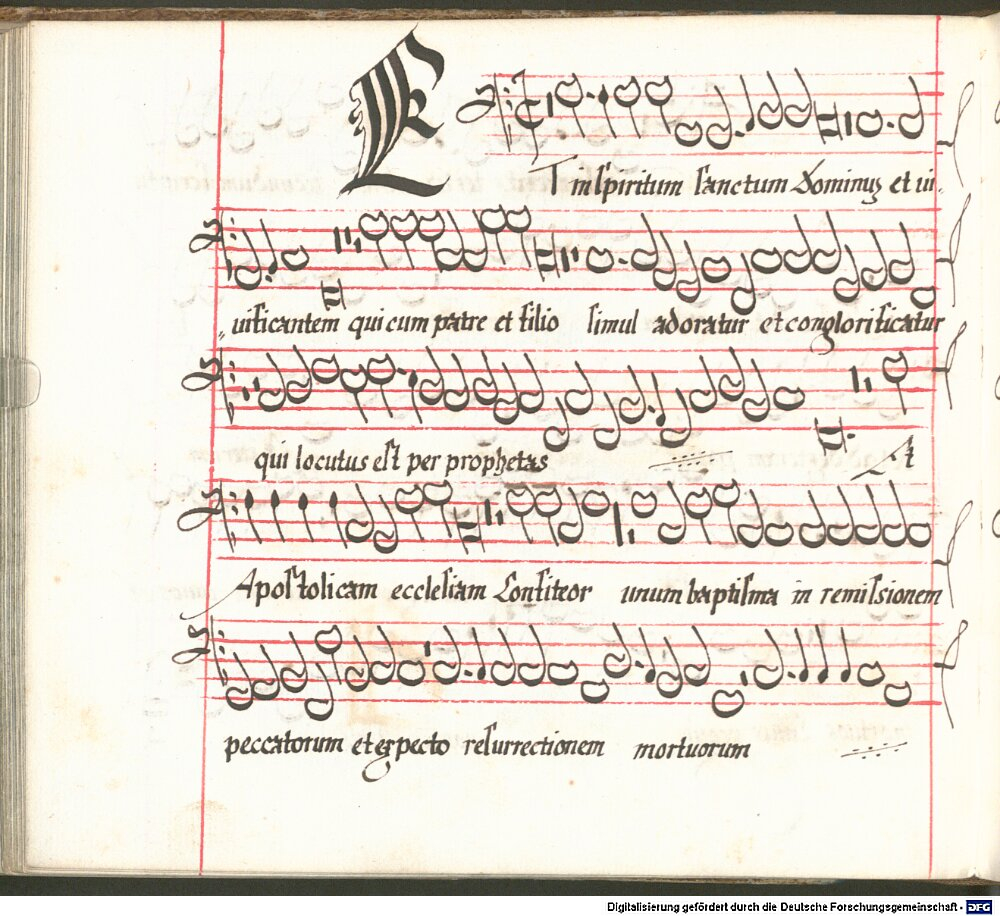 ET in spiritum sanctum Dominus et ui,
,,uificantem qui cum patre et filio simul adoratur et conglorificatur
qui locutus est per prophetas Et
Apostolicam ecclesiam Confiteor unum baptisma in remissionem
peccatorum et expecto resurrectionem mortuorum
Digitalisierung gefördert durch die Deutsche Forschungsgemeinschaft - DFG